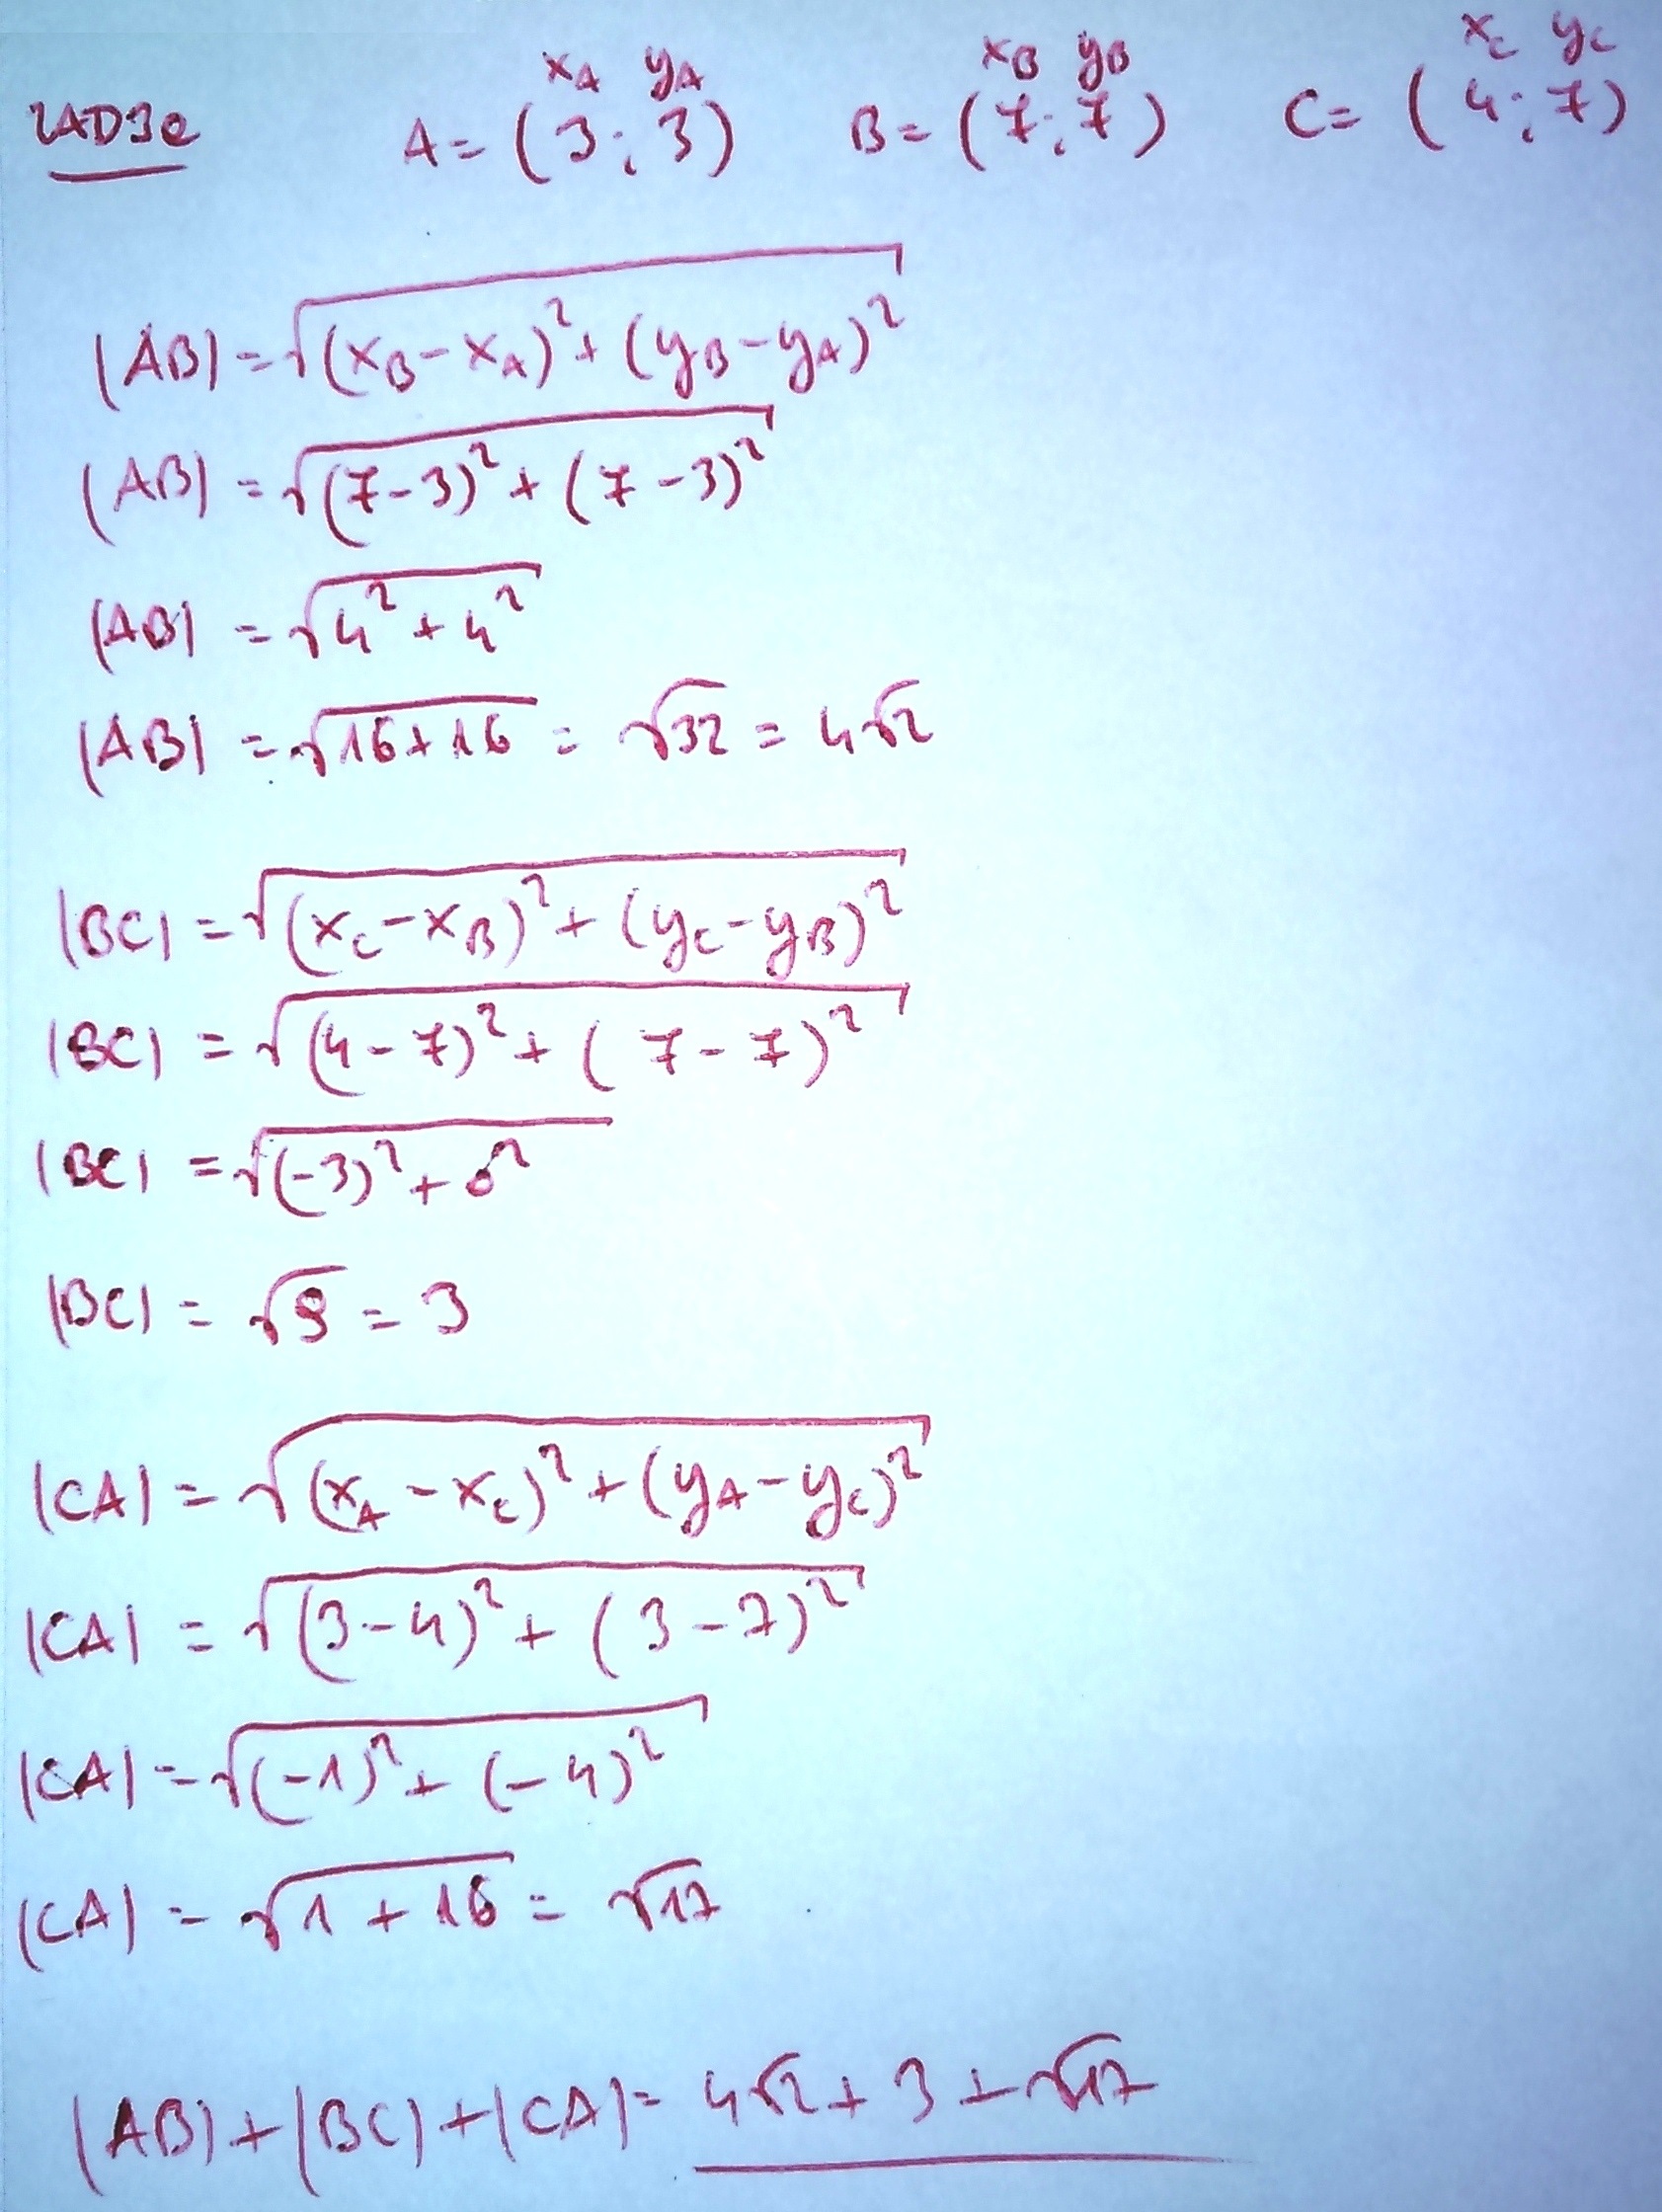 x_A y_A x_B y_B x_C y_C
ZAD3e A = (3; 3) B = (7; 7) C = (4; 7)
|AB| = √((x_B - x_A)² + (y_B - y_A)²)
|AB| = √((7-3)² + (7-3)²)
|AB| = √(4² + 4²)
|AB| = √(16+16) = √32 = 4√2
|BC| = √((x_C - x_B)² + (y_C - y_B)²)
|BC| = √((4-7)² + (7-7)²)
|BC| = √((-3)² + 0²)
|BC| = √9 = 3
|CA| = √((x_A - x_C)² + (y_A - y_C)²)
|CA| = √((3-4)² + (3-7)²)
|CA| = √((-1)² + (-4)²)
|CA| = √(1 + 16) = √17
|AB| + |BC| + |CA| = 4√2 + 3 + √17